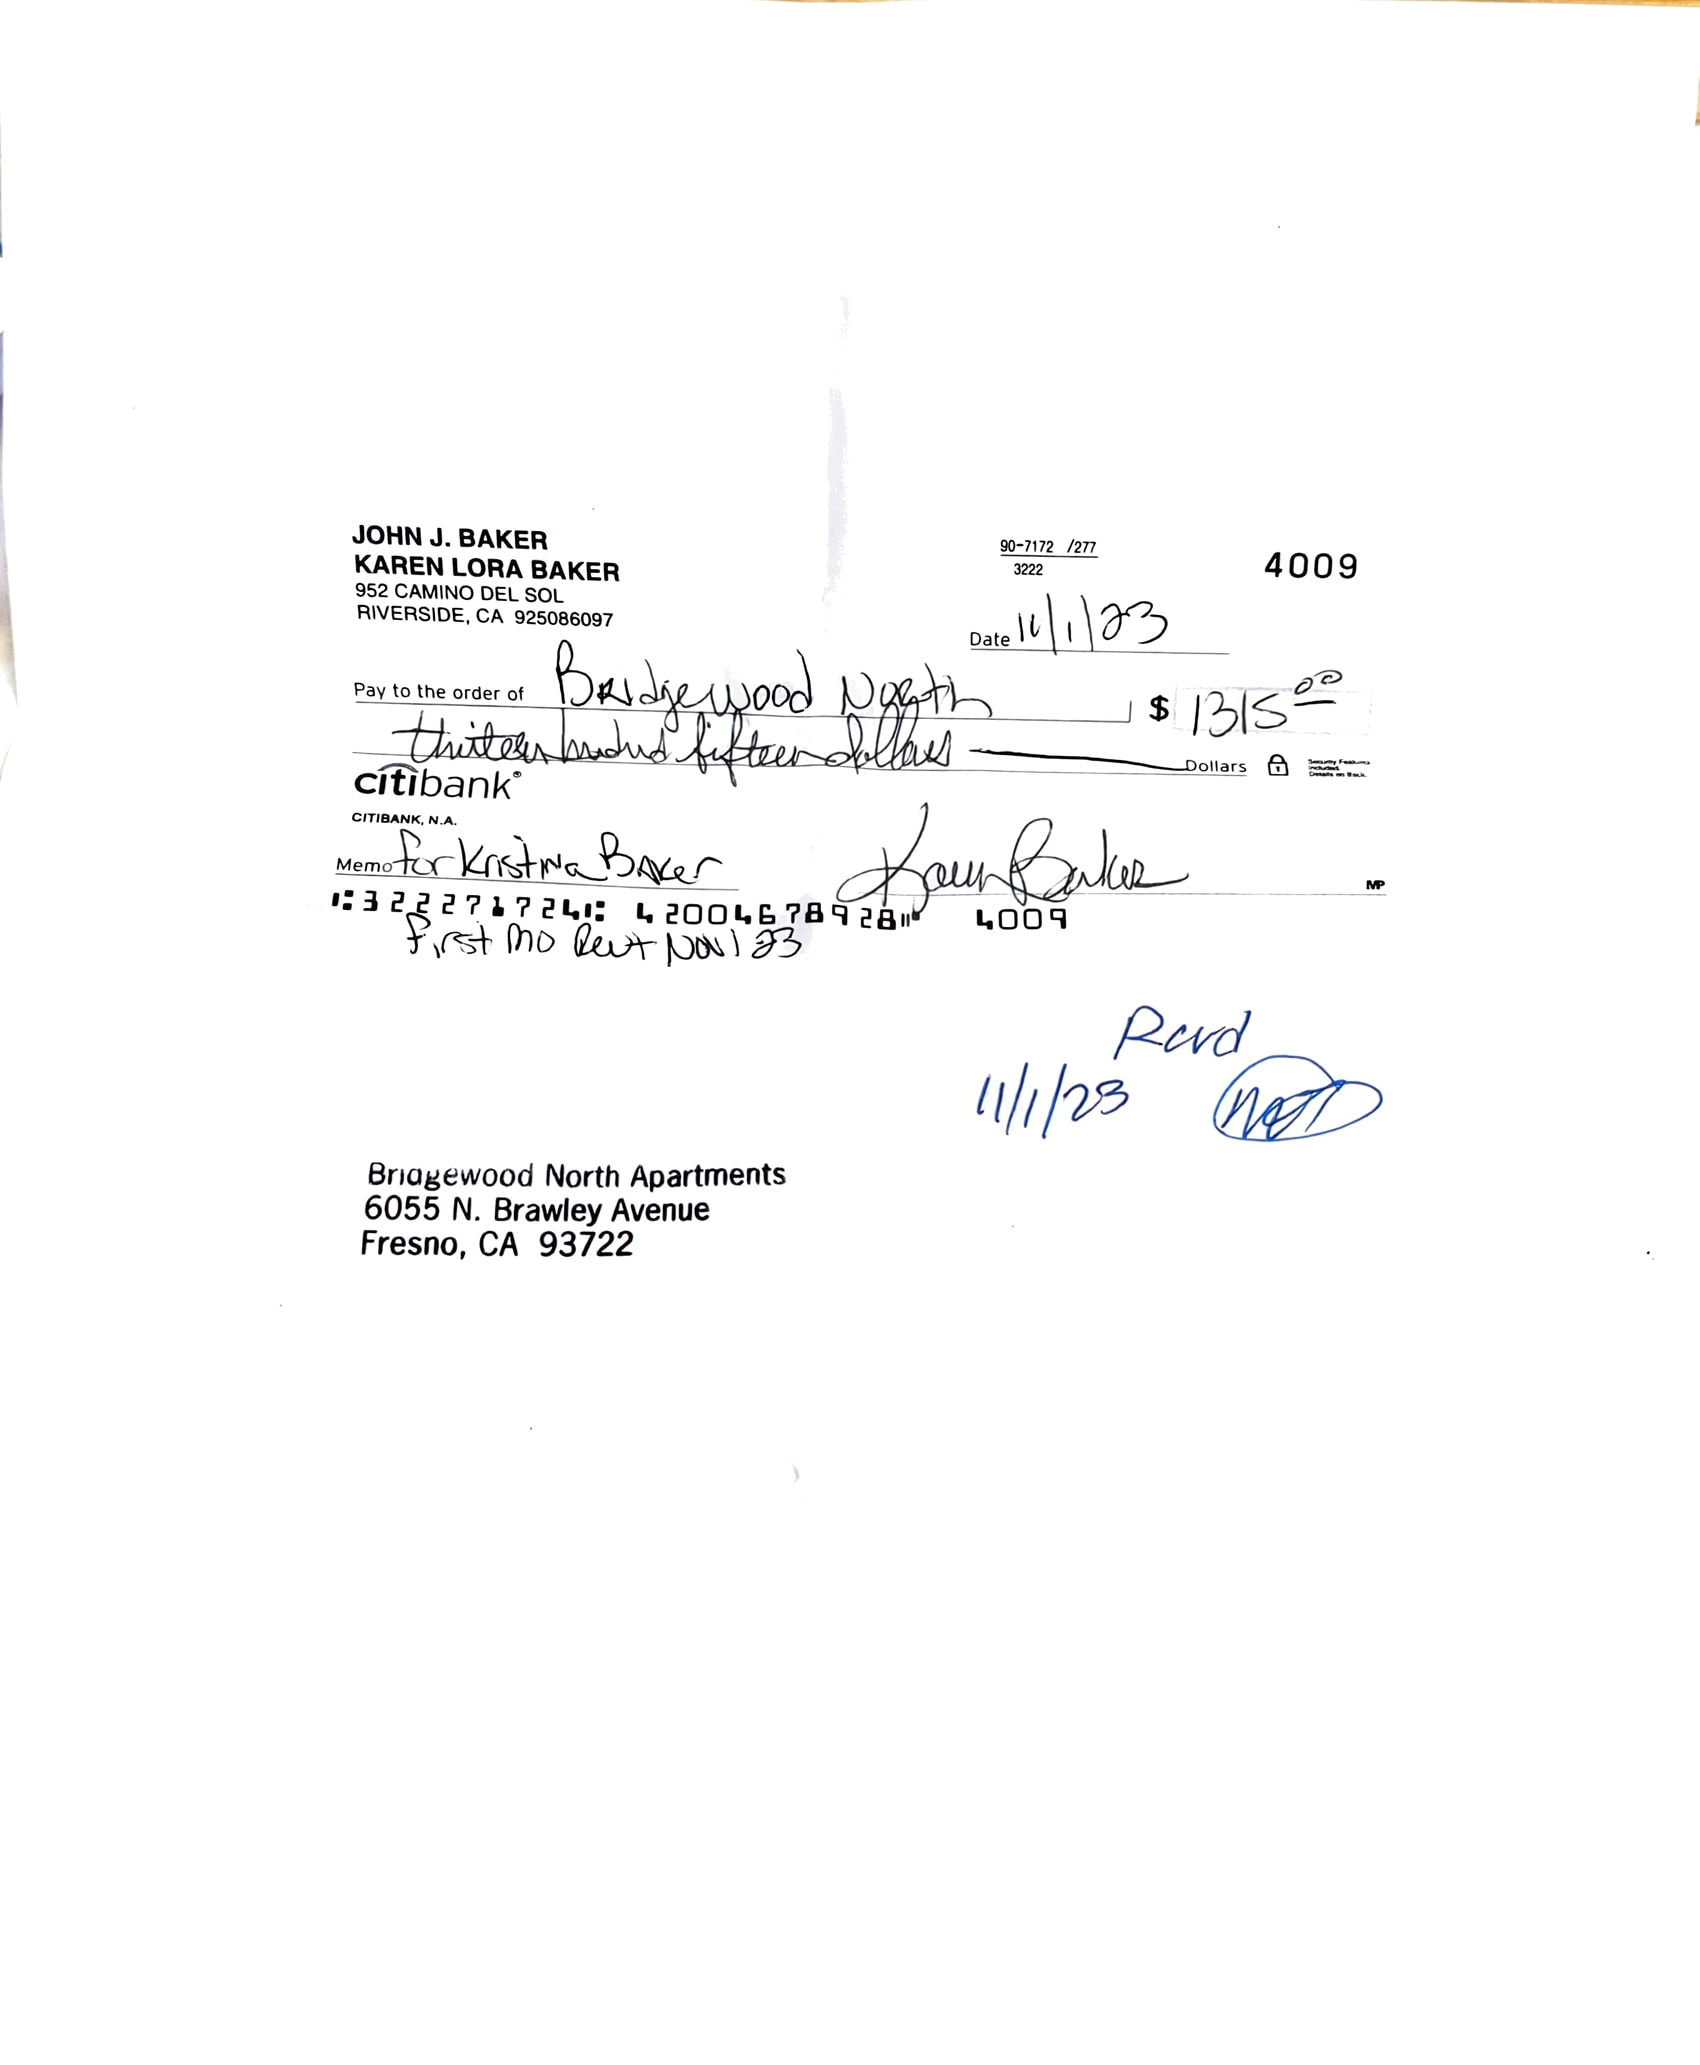 JOHN J. BAKER
KAREN LORA BAKER
952 CAMINO DEL SOL
RIVERSIDE, CA 925086097
90-7172 /277
3222
4009
Date 11/1/23
Pay to the order of Bridgewood North $ 1315.00
thirteen hundred fifteen dollars Dollars
Security Features
Included.
Details on Back.
citibank®
CITIBANK, N.A.
Memo for Kristina Baker Karen Baker MP
⑆322271724⑆ 42004678928⑈ 4009
first mo Rent Nov 1 23
Rcvd
11/1/23
Bridgewood North Apartments
6055 N. Brawley Avenue
Fresno, CA 93722